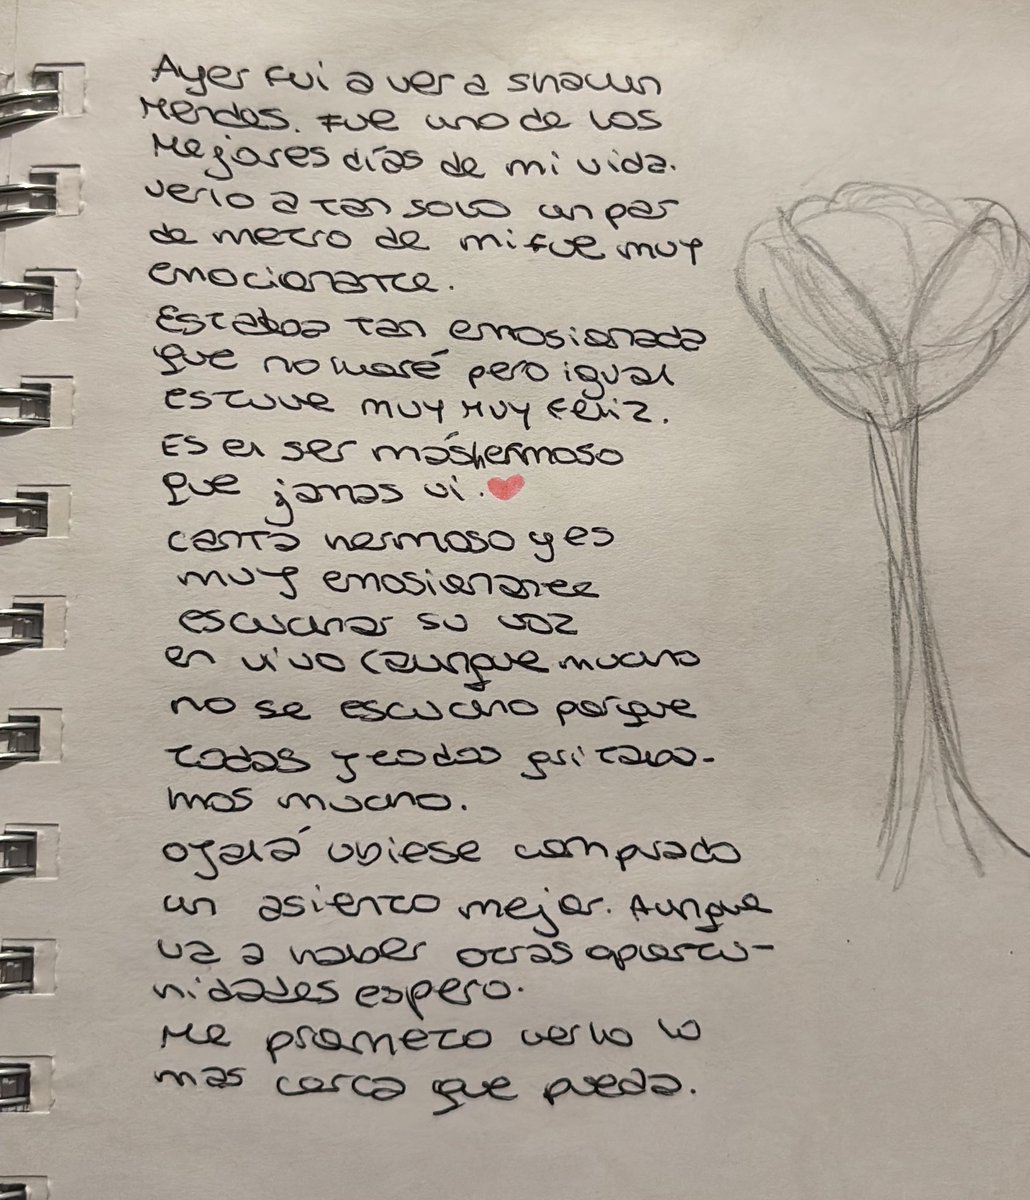 Ayer fui a ver a shawn
Mendes. Fue uno de los
Mejores días de mi vida.
verlo a tan solo un par
de metro de mi fue muy
emocionante.
Estaba tan emosionada
que no lloré pero igual
estuve muy muy feliz.
Es el ser más hermoso
que jamas vi. ❤
canta hermoso y es
muy emosionante
escuchar su voz
en vivo (aunque mucho
no se escucho porque
todas y todos gritaba-
mos mucho.
Ojalá ubiese comprado
un asiento mejor. Aunque
va a haber otras oportu-
nidades espero.
Me prometo verlo lo
mas cerca que pueda.